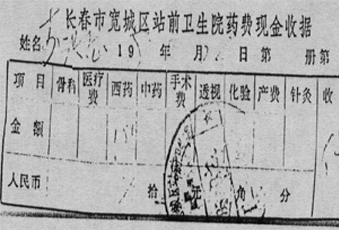 长春市宽城区站前卫生院药费现金收据
姓名 19 年 月 日第 册第
项目 骨科 医疗费 西药 中药 手术费 透视 化验 产费 针灸 收
金额
人民币 拾 元 角 分